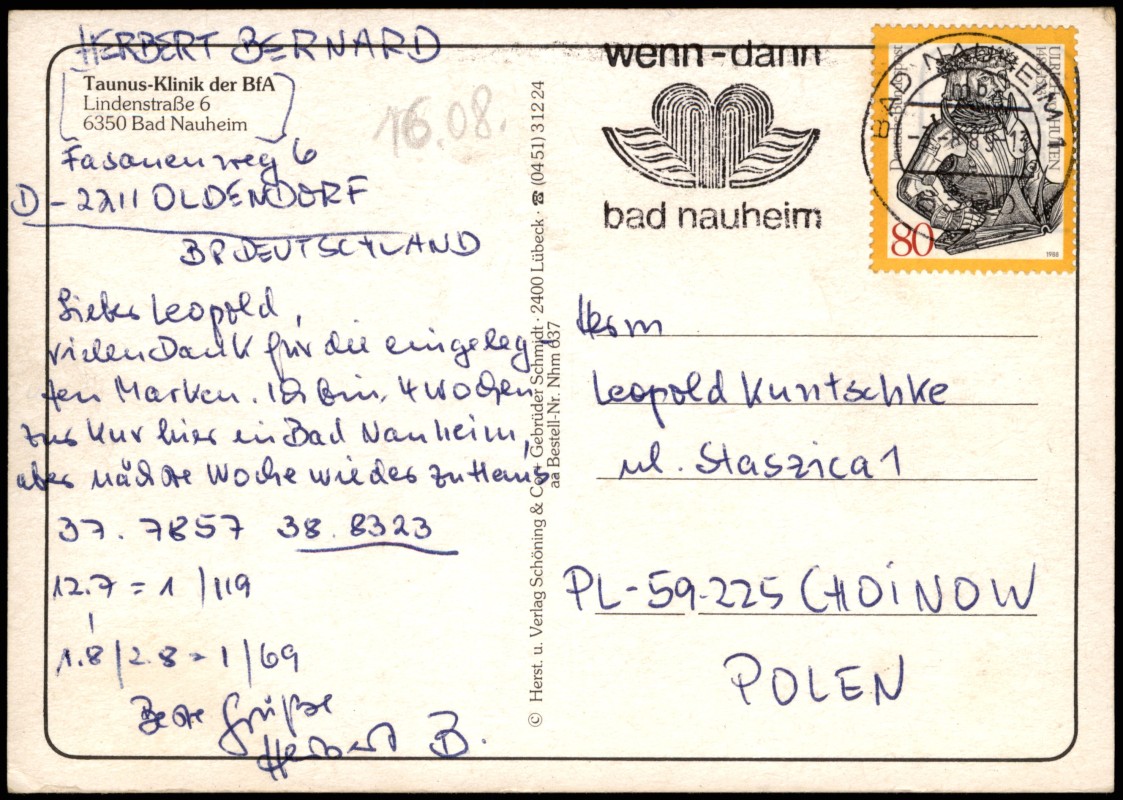 HERBERT BERNARD
Taunus-Klinik der BfA
Lindenstraße 6
6350 Bad Nauheim
Fasanenweg 6
D-2211 OLDENDORF
BRDEUTSCHLAND
16.08.
wenn-dann
bad nauheim
BAD NAUHEIM 1
80
1988
Lieber Leopold,
vielen Dank für die eingeleg-
ten Marken. Ich bin 4 Wochen
zur Kur hier in Bad Nauheim,
aber nächste Woche wieder zu Haus
37. 7857 38. 8323
12.7 = 1 / 119
1.8 / 2.8 = 1 / 69
Beste Grüße
Herbert B.
© Herst. u. Verlag Schöning & Co + Gebrüder Schmidt · 2400 Lübeck · ☎ (04 51) 3 12 24
aa Bestell-Nr. Nhm 637
Herrn
Leopold Kuntschke
ul. Staszica 1
PL-59-225 CHOINOW
POLEN